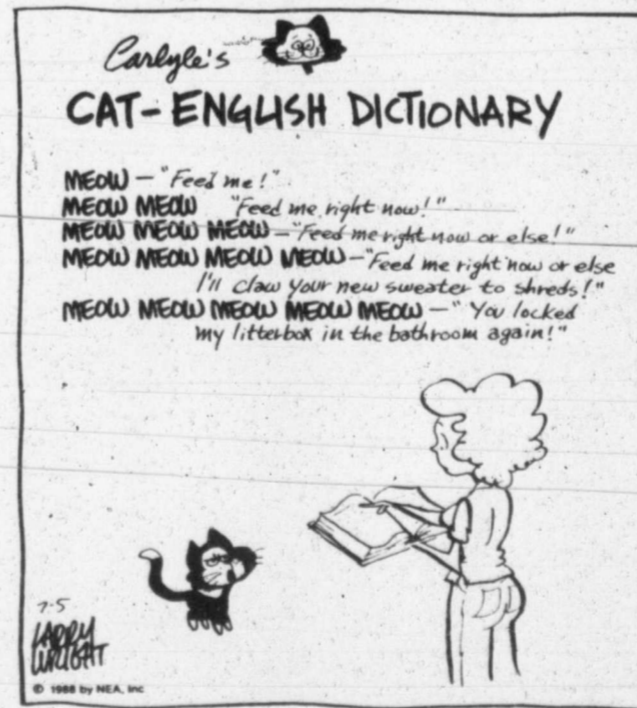 Carlyle's
CAT-ENGLISH DICTIONARY
MEOW - "Feed me!"
MEOW MEOW "Feed me right now!"
MEOW MEOW MEOW - "Feed me right now or else!"
MEOW MEOW MEOW MEOW - "Feed me right now or else
I'll claw your new sweater to shreds!"
MEOW MEOW MEOW MEOW MEOW - "You locked
my litterbox in the bathroom again!"
7-5
LARRY
WRIGHT
© 1988 by NEA, Inc